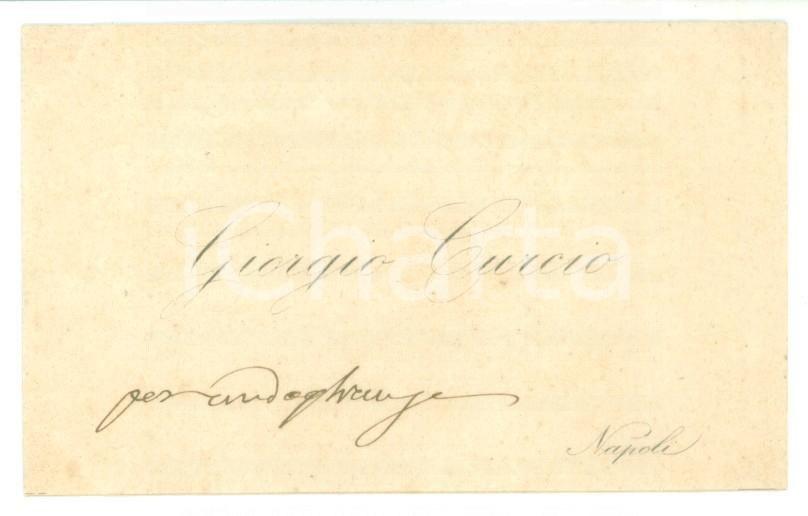 Giorgio Curcio
iCharta
per
Napoli